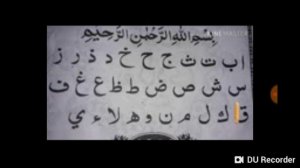 بِسْمِ اللهِ الرَّحْمٰنِ الرَّحِيْمِ
ا ب ت ث ج ح خ د ذ ر ز
س ش ص ض ط ظ ع غ ف
ق ك ل م ن و ه لا ء ي
DU Recorder